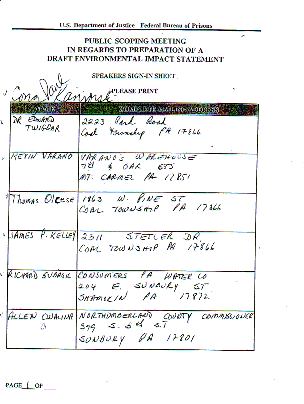 U.S. Department of Justice Federal Bureau of Prisons
PUBLIC SCOPING MEETING
IN REGARDS TO PREPARATION OF A
DRAFT ENVIRONMENTAL IMPACT STATEMENT
SPEAKERS SIGN-IN SHEET
PLEASE PRINT
NAME COMPLETE MAILING ADDRESS
DR EDWARD 2223 Road
TWIGGAR Coal Township PA 17866
KEVIN VARANO VARANO'S WAREHOUSE
7th & OAK STS
MT. CARMEL PA 17851
Thomas 1863 W. PINE ST
COAL TOWNSHIP PA 17866
JAMES P. KELLEY 2311 STETLER DR.
COAL TOWNSHIP PA 17866
RICHARD CONSUMERS PA WATER CO
204 E. SUNBURY ST
SHAMOKIN PA 17872
ALLEN CWALINA NORTHUMBERLAND COUNTY COMMISSIONER
399 S. 5th ST
SUNBURY PA 17801
PAGE 1 OF